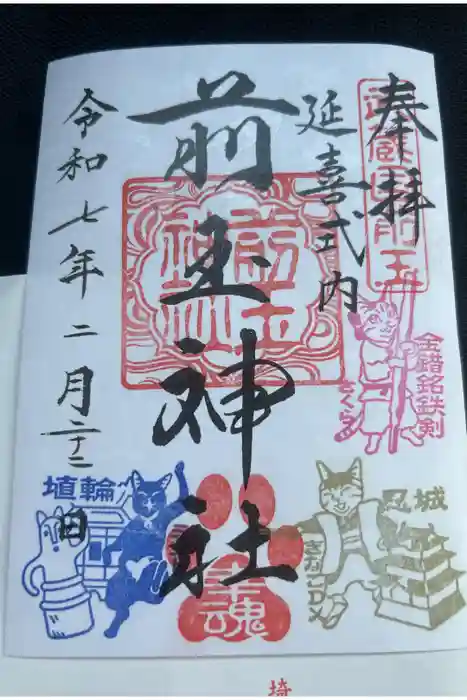 奉拝
延喜式内
前玉神社
令和七年二月二十二日
前玉
神社
金錯銘鉄剣
さくら
埴輪
忍城
きなこDX
幸魂
埼